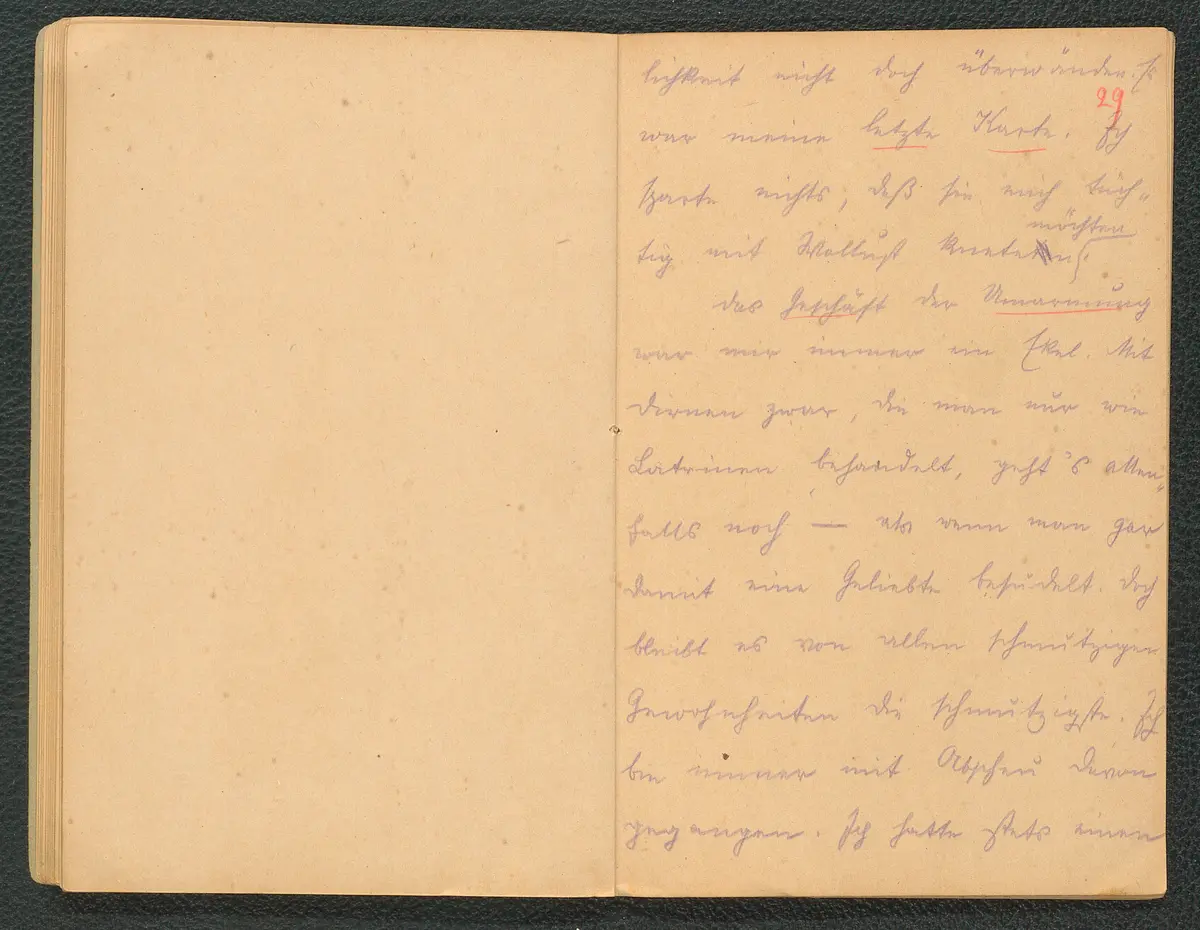 lichkeit nicht doch überwänden. Es
29
war meine letzte Karte. Ich
sparte nichts, daß sie mich tüch-
möchten
tig mit Wollust kneten
Das Geschäft der Umarmung
war mir immer ein Ekel. Mit
Dirnen zwar, die man nur wie
Latrinen behandelt, geht's allen-
falls noch — als wenn man gar
damit eine Geliebte besudelt. Doch
bleibt es von allen schmutzigen
Gewohnheiten die schmutzigste. Ich
bin immer mit Abscheu davon
gegangen. Ich hatte stets einen